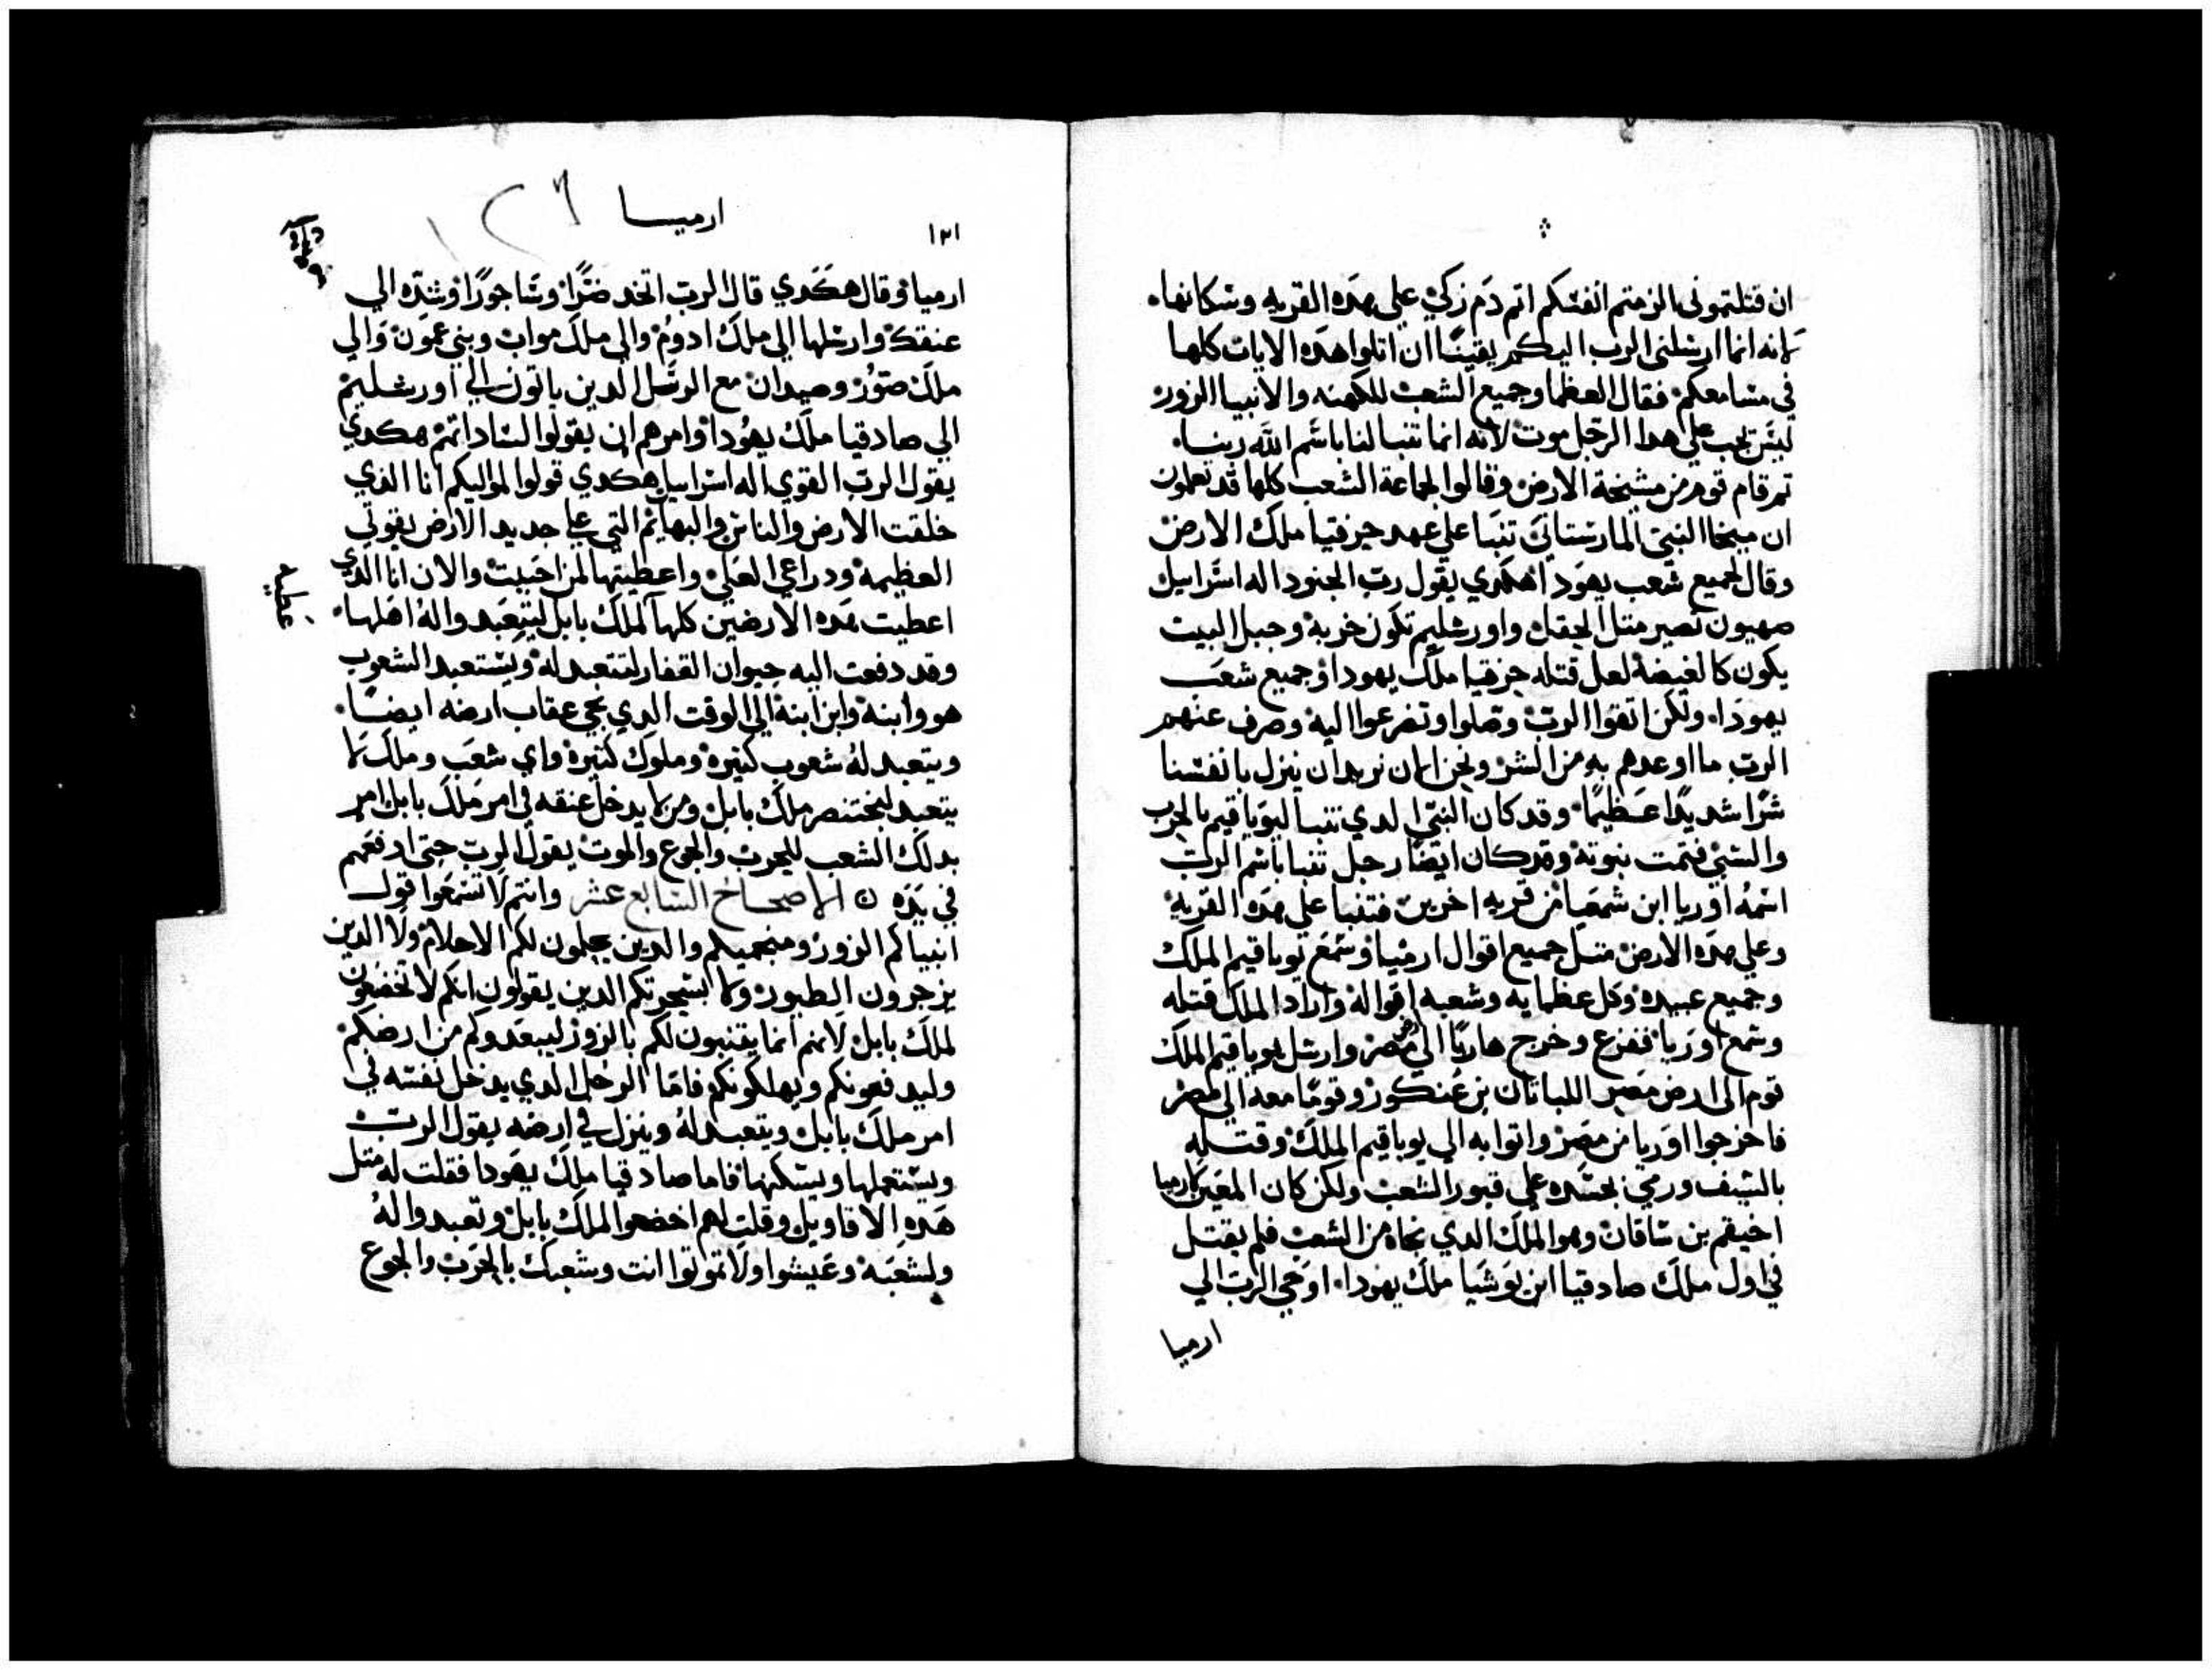 ان قتلتموني الزمتم انفسكم اتم دم زكي على هده القريه وسكانها
لانه انما ارسلني الرب اليكم يقينا ان اتلوا هده الايات كلها
في مسامعكم فقال العظما وجميع الشعب للكهنه والانبيا الزور
ليس يجب على هدا الرجل موت لانه انما تنبا لنا باسم الله ربنا
تم قام قوم من مشيخة الارض وقالوا لجماعة الشعب كلها قد تعلمون
ان ميخا النبي المارستاني تنبا على عهد حزقيا ملك الارض
وقال لجميع شعب يهودا هكدي يقول رب الجنود اله اسراييل
صهيون تصير متل الحقل واورشليم تكون خربة وجبل البيت
يكون كالغيضة لعل قتله حزقيا ملك يهودا وجميع شعب
يهودا ولكن اتقوا الرب وصلوا وتضرعوا اليه وصرف عنهم
الرب ما اوعدهم به من الشر ونحن الان نريد ان ينزل بانفسنا
شرا شديدا عظيما وقد كان النبي الدي تنبا ليوياقيم بالحرب
والسبي فتمت نبوته وقد كان ايضا رجل تنبا باسم الرب
اسمه اوريا ابن شمعيا من قريه اخرين فتنبا على هده القريه
وعلى هده الارض متل جميع اقوال ارميا وسمع يوياقيم الملك
وجميع عبيده وكل عظمايه وشعبه اقواله واراد الملك قتله
وسمع اوريا ففزع وخرج هاربا الى مصر وارسل يوياقيم الملك
قوم الى ارض مصر اللباتان بن عنكور وقوما معه الى مصر
فاخرجوا اوريا من مصر واتوا به الي يوياقيم الملك وقتله
بالسيف ورمي بجسده على قبور الشعب ولكن كان المعين لارميا
اخيقم بن ساقان وهو الملك الدي نجاه من الشعب فلم يقتل
في اول ملك صادقيا ابن يوشيا ملك يهودا اوحي الرب الي
ارميا
ارميا
١٢١
ارميا وقال هكدي قال الرب اتخد ضرا وساجورا وشده الي
عنقك وارسلها الي ملك ادوم والي ملك مواب وبني عمون والي
ملك صور وصيدان مع الرسل الدين ياتون الي اورشليم
الي صادقيا ملك يهودا وامرهم ان يقولوا لساداتهم هكدي
يقول الرب القوي اله اسراييل هكدي قولوا لمواليكم انا الذي
خلقت الارض والناس والبهايم التي على جديد الارض بقوتي
العظيمه ودراعي العلي واعطيتها لمن احببت والان انا الدي
اعطيت هده الارضين كلها لملك بابل ليتعبدوا له اهلها
وقد دفعت اليه حيوان القفار لتتعبد له ويستعبد الشعوب
هو وابنه وابن ابنه الي الوقت الدي يجي عقاب ارضه ايضا
ويتعبد له شعوب كتيره وملوك كتيره واي شعب وملك لا
يتعبد لبختنصر ملك بابل ومن لا يدخل عنقه في امر ملك بابل امر
بدلك الشعب للحرب والجوع والموت يقول الرب حتى ادفعهم
في يده ن الاصحاح السابع عشر وانتم لا تسمعوا قول
انبياكم الزور ومنجميكم والدين يحلمون لكم الاحلام ولا الدين
يزجرون الطيور ولا لسحرتكم الدين يقولون انكم لا تخضعون
لملك بابل لانهم انما يتنبون لكم بالزور ليبعدوكم من ارضكم
وليدفعونكم ويهلكونكم فاما الرجل الدي يدخل نفسه في
امر ملك بابل ويتعبد له وينزل في ارضه يقول الرب
ويستعملها ويسكنها فاما صادقيا ملك يهودا فقلت له متل
هده الاقاويل وقلت لهم اخضعوا لملك بابل وتعبدوا له
ولشعبه وعيشوا ولا تموتوا انت وشعبك بالحرب والجوع